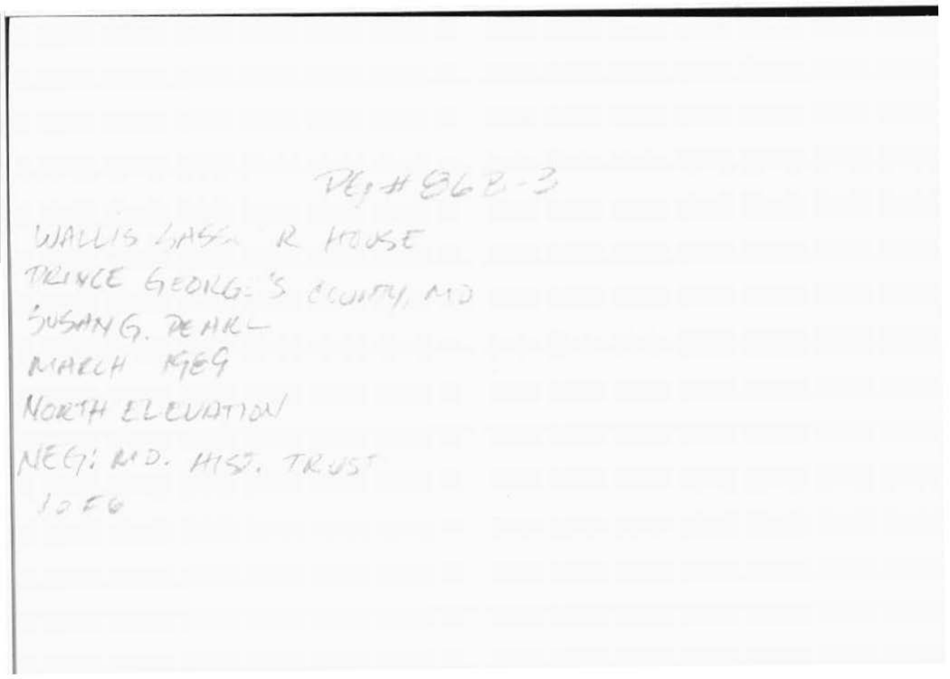 PG# 86B-3
WALLIS HOUSE
PRINCE GEORGE'S COUNTY, MD
SUSAN G. PEARL
MARCH 1989
NORTH ELEVATION
NEG: MD. HIST. TRUST
1 OF 6